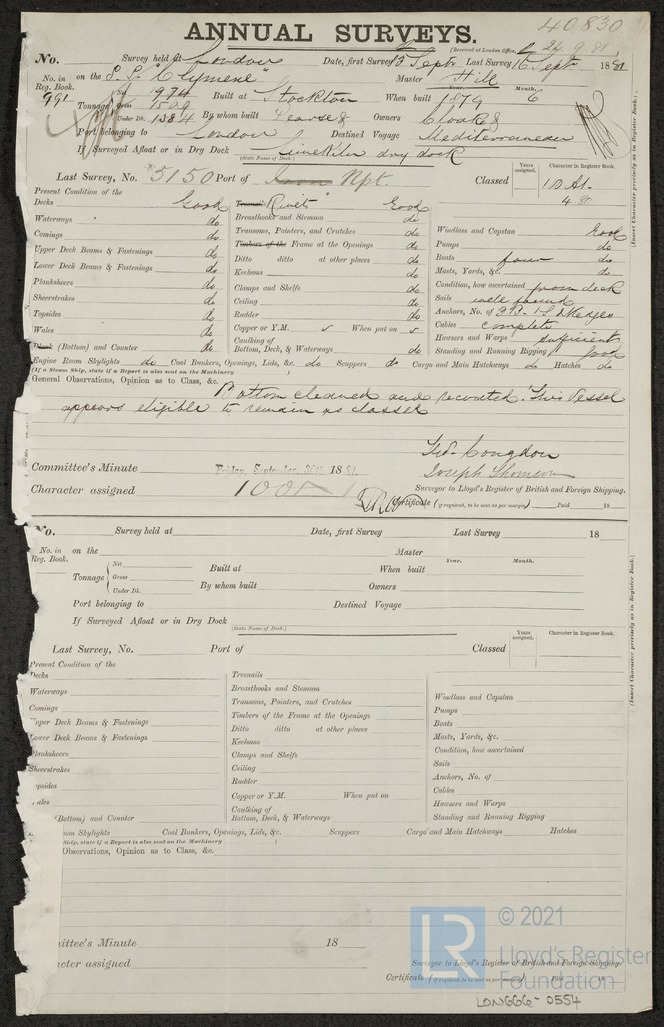 ANNUAL SURVEYS.
40830
(Received at London Office, 24.9.81)
No. Survey held at London Date, first Survey 13 Septr Last Survey 16 Septr 1881
No. in Reg. Book. on the S.S. "Clymene" Master Hill
991 Tonnage Net 1974 Built at Stockton When built Year. 1879 Month. 6
Gross 1509
Under Dk. 1384 By whom built Pearse & Owners
Port belonging to London Destined Voyage Mediterranean
If Surveyed Afloat or in Dry Dock Limekiln dry dock
(State Name of Dock.)
Last Survey, No. 5150 Port of Iron Rpt. Classed Years assigned. Character in Register Book.
100 A1.
4.81
(Insert Character precisely as in Register Book.)
Present Condition of the
Decks Good
Waterways do
Comings do
Upper Deck Beams & Fastenings do
Lower Deck Beams & Fastenings do
Planksheers do
Sheerstrakes do
Topsides do
Wales do
(Bottom) and Counter do
Treenails Rivets Good
Breasthooks and Stemson do
Transoms, Pointers, and Crutches do
Timbers of the Frame at the Openings do
Ditto ditto at other places do
Keelsons do
Clamps and Shelfs do
Ceiling do
Rudder do
Copper or Y.M. When put on
Caulking of
Bottom, Deck, & Waterways do
Windlass and Capstan Good
Pumps do
Boats four do
Masts, Yards, &c. do
Condition, how ascertained from deck
Sails well found
Anchors, No. of 3 B. 1 S. 2 Kedges
Cables complete
Hawsers and Warps sufficient
Standing and Running Rigging good
Engine Room Skylights do Coal Bunkers, Openings, Lids, &c. do Scuppers do Cargo and Main Hatchways do Hatches do
(If a Steam Ship, state if a Report is also sent on the Machinery )
General Observations, Opinion as to Class, &c.
Bottom cleaned and recoated. This Vessel
appears eligible to remain as classed
Geo. Congdon
Joseph Thomson
Committee's Minute Friday, September 30th 1881.
Character assigned 100A1
Surveyor to Lloyd's Register of British and Foreign Shipping.
Certificate (if required, to be sent as per margin) Paid 18
No. Survey held at Date, first Survey Last Survey 18
No. in Reg. Book. on the Master
Tonnage Net Built at When built Year. Month.
Gross
Under Dk. By whom built Owners
Port belonging to Destined Voyage
If Surveyed Afloat or in Dry Dock
(State Name of Dock.)
Last Survey, No. Port of Classed Years assigned. Character in Register Book.
(Insert Character precisely as in Register Book.)
Present Condition of the
Decks
Waterways
Comings
Upper Deck Beams & Fastenings
Lower Deck Beams & Fastenings
Planksheers
Sheerstrakes
opsides
ales
(Bottom) and Counter
Treenails
Breasthooks and Stemson
Transoms, Pointers, and Crutches
Timbers of the Frame at the Openings
Ditto ditto at other places
Keelsons
Clamps and Shelfs
Ceiling
Rudder
Copper or Y.M. When put on
Caulking of
Bottom, Deck, & Waterways
Windlass and Capstan
Pumps
Boats
Masts, Yards, &c.
Condition, how ascertained
Sails
Anchors, No. of
Cables
Hawsers and Warps
Standing and Running Rigging
om Skylights Coal Bunkers, Openings, Lids, &c. Scuppers Cargo and Main Hatchways Hatches
Ship, state if a Report is also sent on the Machinery )
Observations, Opinion as to Class, &c.
mittee's Minute 18
acter assigned
Surveyor to Lloyd's Register of British and Foreign Shipping.
Certificate (if required, to be sent as per margin) Paid 18
LR © 2021
Lloyd's Register
Foundation
LON666-0554